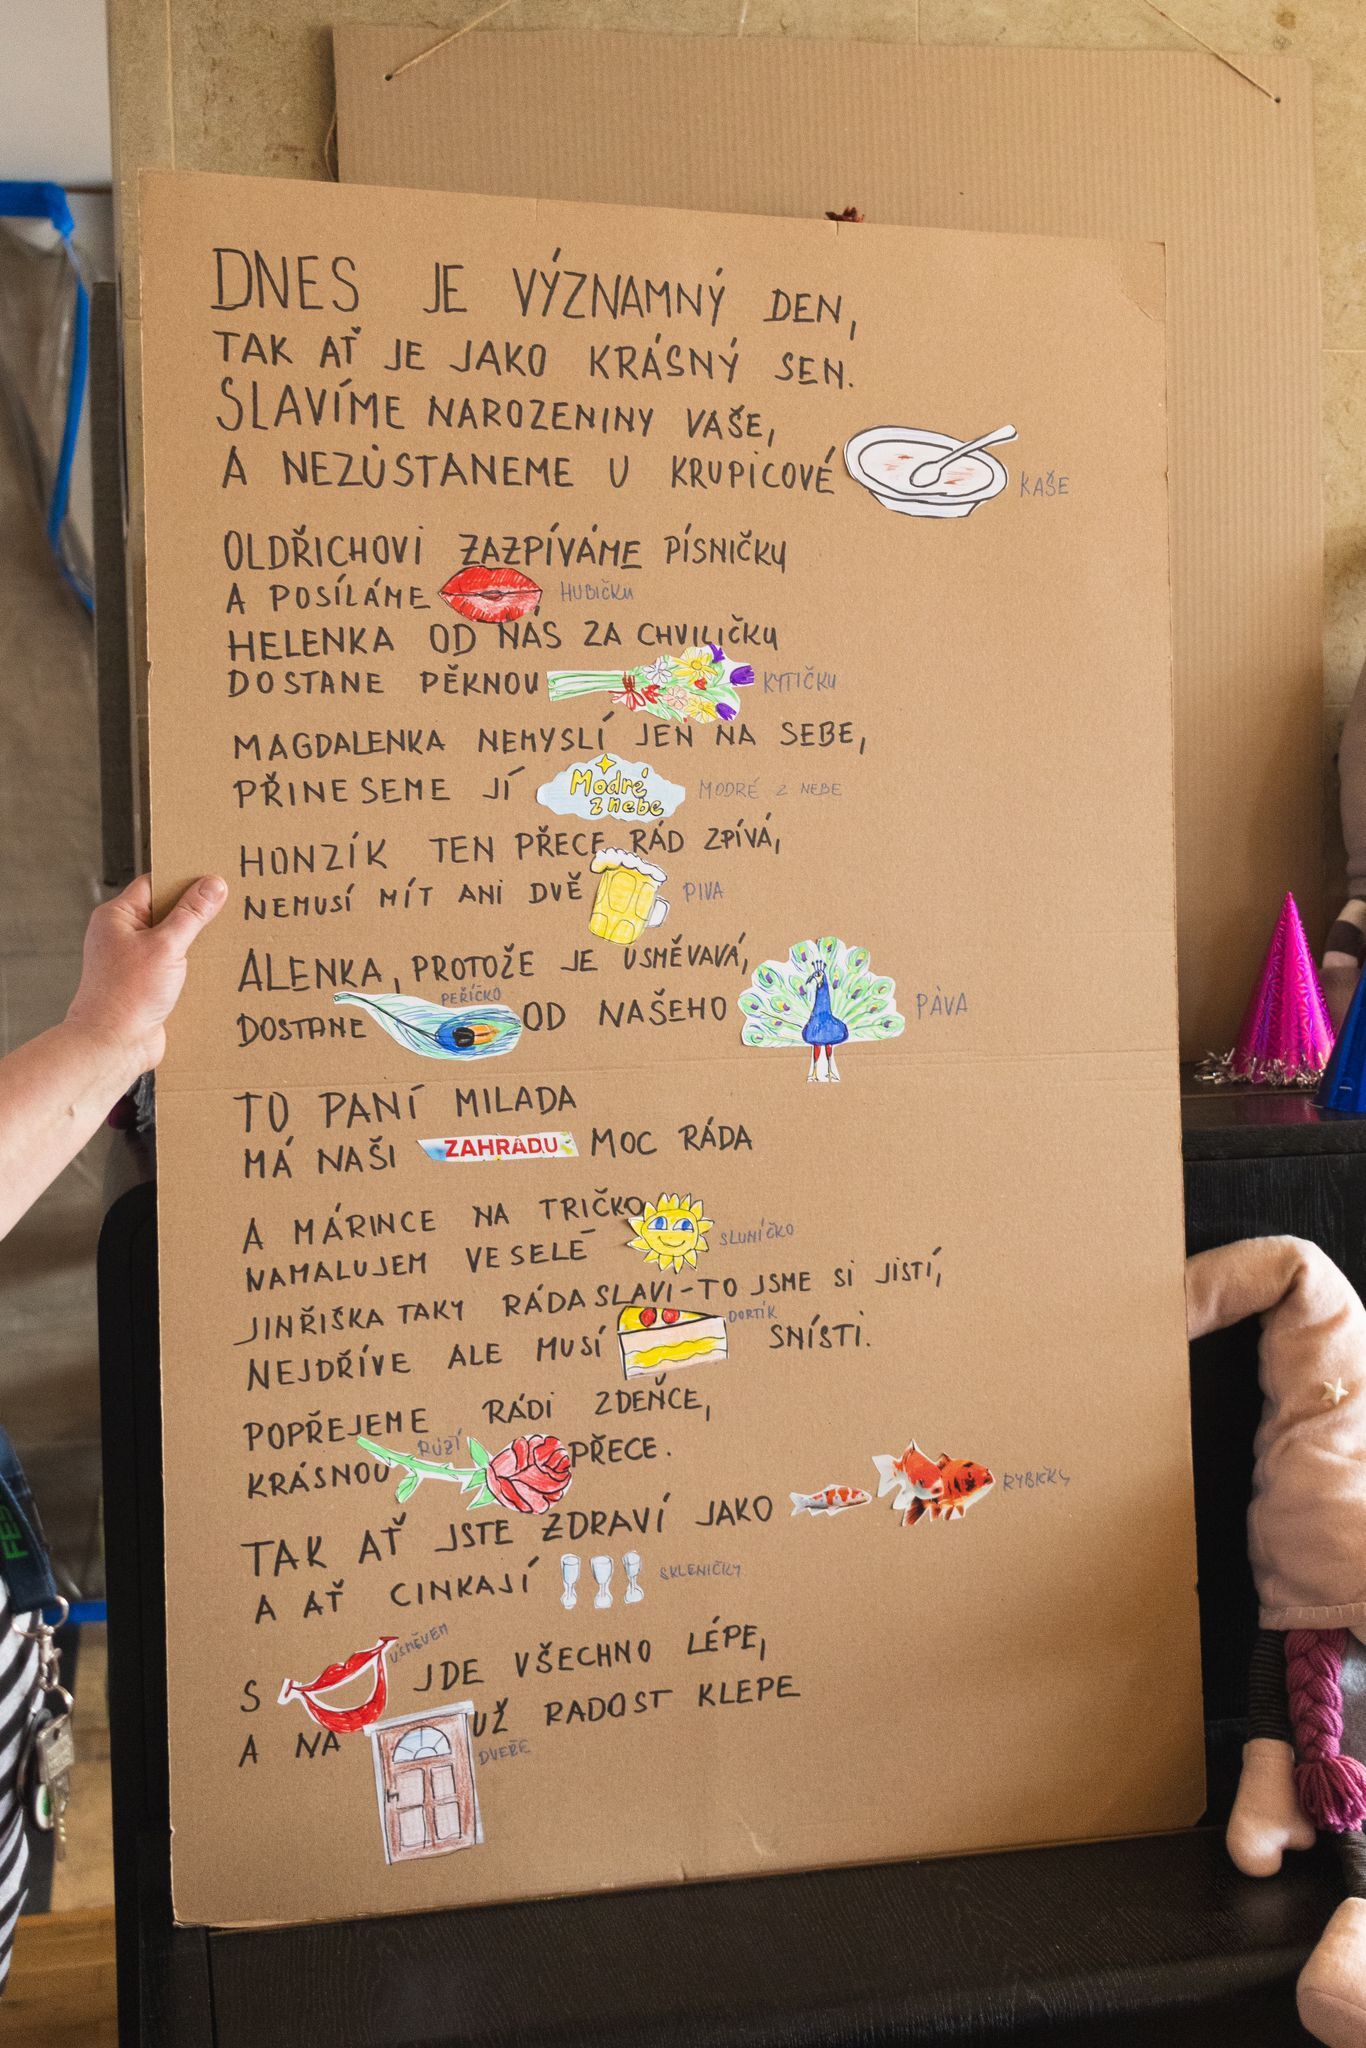 DNES JE VÝZNAMNÝ DEN,
TAK AŤ JE JAKO KRÁSNÝ SEN.
SLAVÍME NAROZENINY VAŠE,
A NEZŮSTANEME U KRUPICOVÉ KAŠE
OLDŘICHOVI ZAZPÍVÁME PÍSNIČKU
A POSÍLÁME HUBIČKU
HELENKA OD NÁS ZA CHVILIČKU
DOSTANE PĚKNOU KYTIČKU
MAGDALENKA NEMYSLÍ JEN NA SEBE,
PŘINESEME JÍ Modré z nebe MODRÉ Z NEBE
HONZÍK TEN PŘECE RÁD ZPÍVÁ,
NEMUSÍ MÍT ANI DVĚ PIVA
ALENKA, PROTOŽE JE USMĚVAVÁ,
DOSTANE PEŘÍČKO OD NAŠEHO PÁVA
TO PANÍ MILADA
MÁ NAŠI ZAHRADU MOC RÁDA
A MÁRINCE NA TRIČKO
NAMALUJEM VESELÉ SLUNÍČKO
JINŘIŠKA TAKY RÁDA SLAVI-TO JSME SI JISTÍ,
NEJDŘÍVE ALE MUSÍ DORTÍK SNÍSTI.
POPŘEJEME RÁDI ZDEŇCE,
KRÁSNOU RŮŽÍ PŘECE.
TAK AŤ JSTE ZDRAVÍ JAKO RYBIČKY
A AŤ CINKAJÍ SKLENIČKY
S ÚSMĚVEM JDE VŠECHNO LÉPE,
A NA DVEŘE UŽ RADOST KLEPE